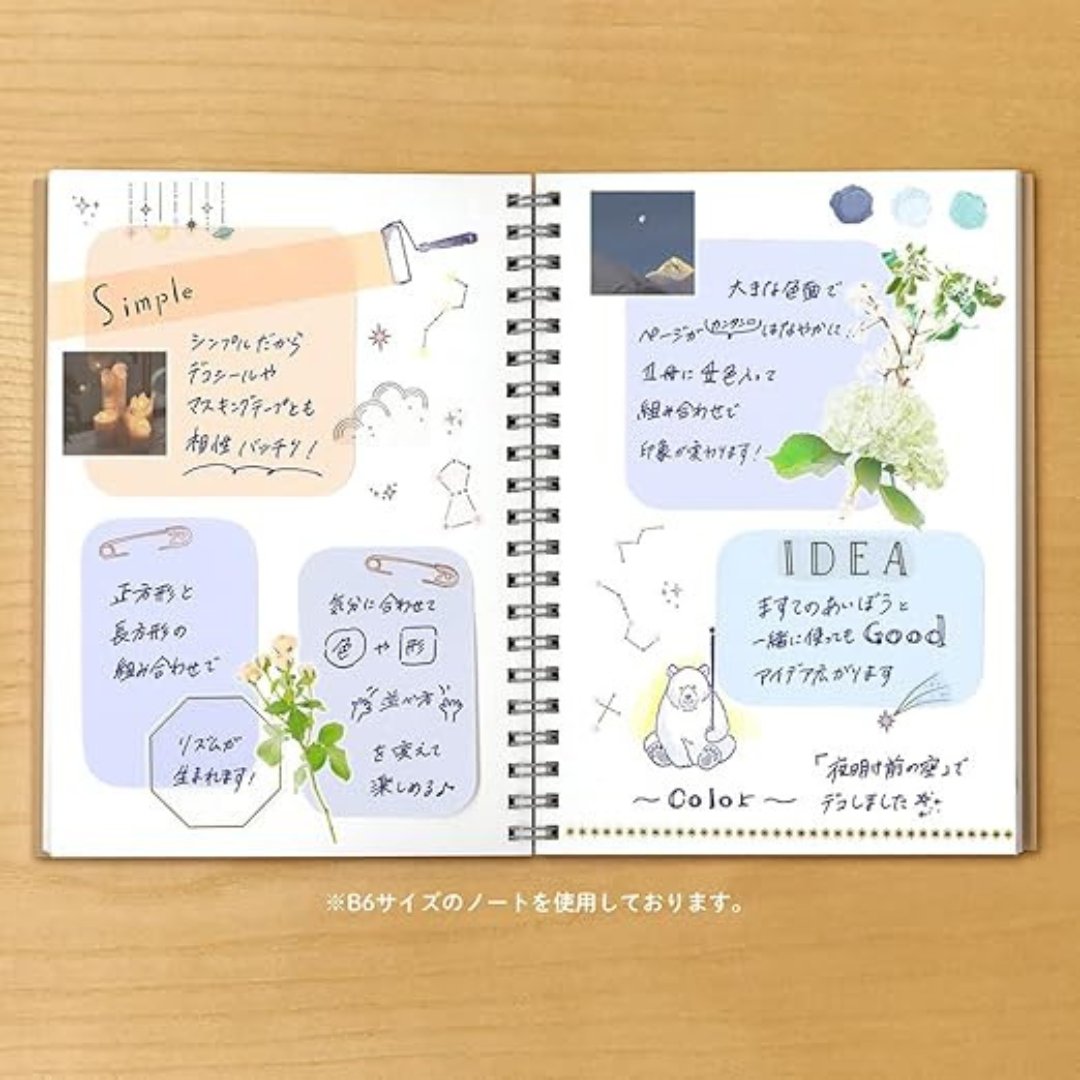 Simple
シンプルだから
デコシールや
マスキングテープとも
相性バッチリ!
正方形と
長方形の
組み合わせで
リズムが
生まれます!
気分に合わせて
色や形
並べ方
を変えて
楽しめる♪
大きな色面で
ページがカンタンにはなやかに!
1冊に全色入って
組み合わせで
印象が変わります!
IDEA
ますてのあいぼうと
一緒に使っても Good
アイデア広がります
「夜明け前の空」で
デコしました
〜Color〜
※B6サイズのノートを使用しております。